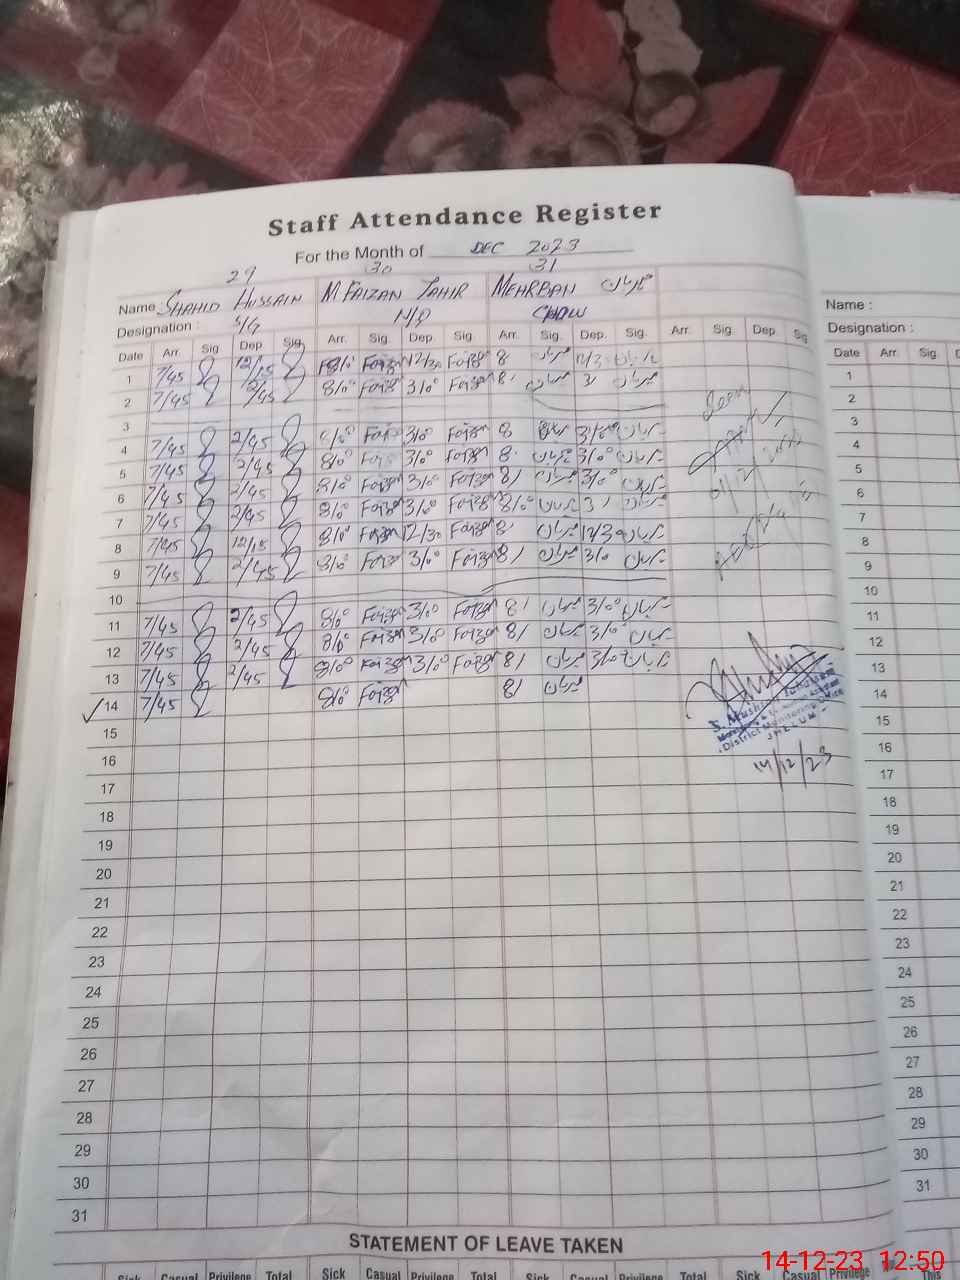 Staff Attendance Register
For the Month of DEC 2023
29 30 31
Name SHAHID HUSSAIN M. FAIZAN TAHIR MEHRBAN مہربان
Designation : S/G N/Q
Date Arr. Sig. Dep. Sig. Arr. Sig. Dep. Sig. Arr. Sig. Dep. Sig. Arr. Sig. Dep. Sig
1 7/45 12/15 8/0 Faizan 12/30 Faizan 8 مہربان 12/3 مہربان
2 7/45 2/45 8/0 Faizan 3/0 Faizan 8/ مہربان 3/ مہربان
3
4 7/45 2/45 8/0 Faizan 3/0 Faizan 8 مہربان 3/0 مہربان
5 7/45 2/45 8/0 Faizan 3/0 Faizan 8 مہربان 3/0 مہربان
6 7/45 2/45 8/0 Faizan 3/0 Faizan 8/ مہربان 3/0 مہربان
7 7/45 2/45 8/0 Faizan 3/0 Faizan 8/0 مہربان 3/ مہربان
8 7/45 12/15 8/0 Faizan 12/30 Faizan 8/ مہربان 12/30 مہربان
9 7/45 2/45 8/0 Faizan 3/0 Faizan 8/ مہربان 3/0 مہربان
10
11 7/45 2/45 8/0 Faizan 3/0 Faizan 8/ مہربان 3/0 مہربان
12 7/45 2/45 8/0 Faizan 3/0 Faizan 8/ مہربان 3/0 مہربان
13 7/45 2/45 8/0 Faizan 3/0 Faizan 8/ مہربان 3/0 مہربان
14 7/45 8/0 Faizan 8/ مہربان
15
16
17
18
19
20
21
22
23
24
25
26
27
28
29
30
31
Seen
District Monitoring Office
JHELUM
14/12/23
STATEMENT OF LEAVE TAKEN
Sick Casual Privilege Total Sick Casual Privilege Total Sick Casual Privilege Total Sick Casual Privilege
Name :
Designation :
Date Arr. Sig. D
1
2
3
4
5
6
7
8
9
10
11
12
13
14
15
16
17
18
19
20
21
22
23
24
25
26
27
28
29
30
31
This
14-12-23 12:50